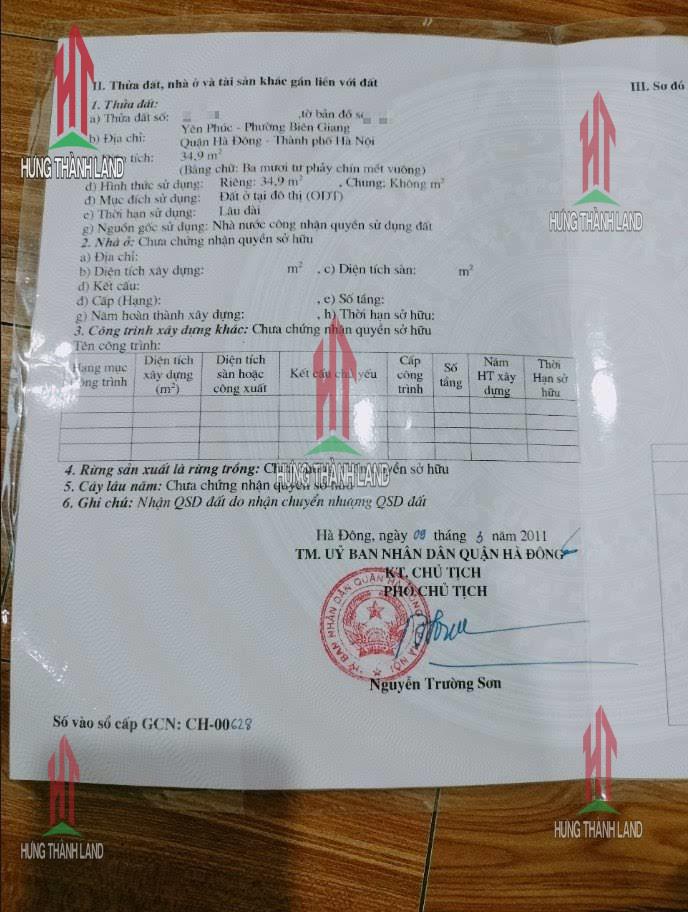 II. Thửa đất, nhà ở và tài sản khác gắn liền với đất
III. Sơ đồ
1. Thửa đất:
a) Thửa đất số: ,tờ bản đồ số
Yên Phúc - Phường Biên Giang
b) Địa chỉ: Quận Hà Đông - Thành phố Hà Nội
tích: 34,9 m²
(Bằng chữ: Ba mươi tư phảy chín mét vuông)
d) Hình thức sử dụng: Riêng: 34,9 m² , Chung: Không m²
đ) Mục đích sử dụng: Đất ở tại đô thị (ODT)
e) Thời hạn sử dụng: Lâu dài
g) Nguồn gốc sử dụng: Nhà nước công nhận quyền sử dụng đất
2. Nhà ở: Chưa chứng nhận quyền sở hữu
a) Địa chỉ:
b) Diện tích xây dựng: m² , c) Diện tích sàn: m²
d) Kết cấu:
đ) Cấp (Hạng): , e) Số tầng:
g) Năm hoàn thành xây dựng: , h) Thời hạn sở hữu:
3. Công trình xây dựng khác: Chưa chứng nhận quyền sở hữu
Tên công trình:
Hạng mục công trình
Diện tích xây dựng (m²)
Diện tích sàn hoặc công xuất
Kết cấu chủ yếu
Cấp công trình
Số tầng
Năm HT xây dựng
Thời Hạn sở hữu
4. Rừng sản xuất là rừng trồng: Chưa chứng nhận quyền sở hữu
5. Cây lâu năm: Chưa chứng nhận quyền sở hữu
6. Ghi chú: Nhận QSD đất do nhận chuyển nhượng QSD đất
Hà Đông, ngày 09 tháng 3 năm 2011
TM. UỶ BAN NHÂN DÂN QUẬN HÀ ĐÔNG
KT. CHỦ TỊCH
PHÓ CHỦ TỊCH
UỶ BAN NHÂN DÂN QUẬN HÀ ĐÔNG HÀ NỘI
Nguyễn Trường Sơn
Số vào sổ cấp GCN: CH-00628
HƯNG THÀNH LAND
HƯNG THÀNH LAND
HƯNG THÀNH LAND
HƯNG THÀNH LAND
HƯNG THÀNH LAND